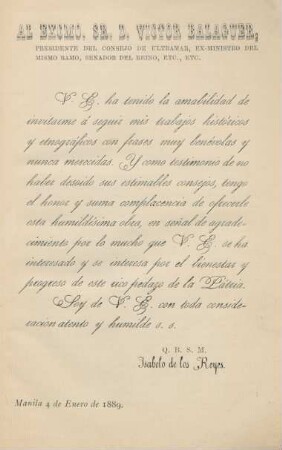 AL EXCMO. SR. D. VICTOR BALAGUER,
PRESIDENTE DEL CONSEJO DE ULTRAMAR, EX-MINISTRO DEL
MISMO RAMO, SENADOR DEL REINO, ETC., ETC.
V. E. ha tenido la amabilidad de
invitarme á seguir mis trabajos históricos
y etnográficos con frases muy benévolas y
nunca merecidas. Y como testimonio de no
haber desoido sus estimables consejos, tengo
el honor y suma complacencia de ofrecerle
esta humildísima obra, en señal de agrade-
cimiento por lo mucho que V. E. se ha
interesado y se interesa por el bienestar y
progreso de este rico pedazo de la Pátria.
Soy de V. E. con toda conside-
racion atento y humilde s. s.
Q. B. S. M.
Isabelo de los Reyes.
Manila 4 de Enero de 1889.